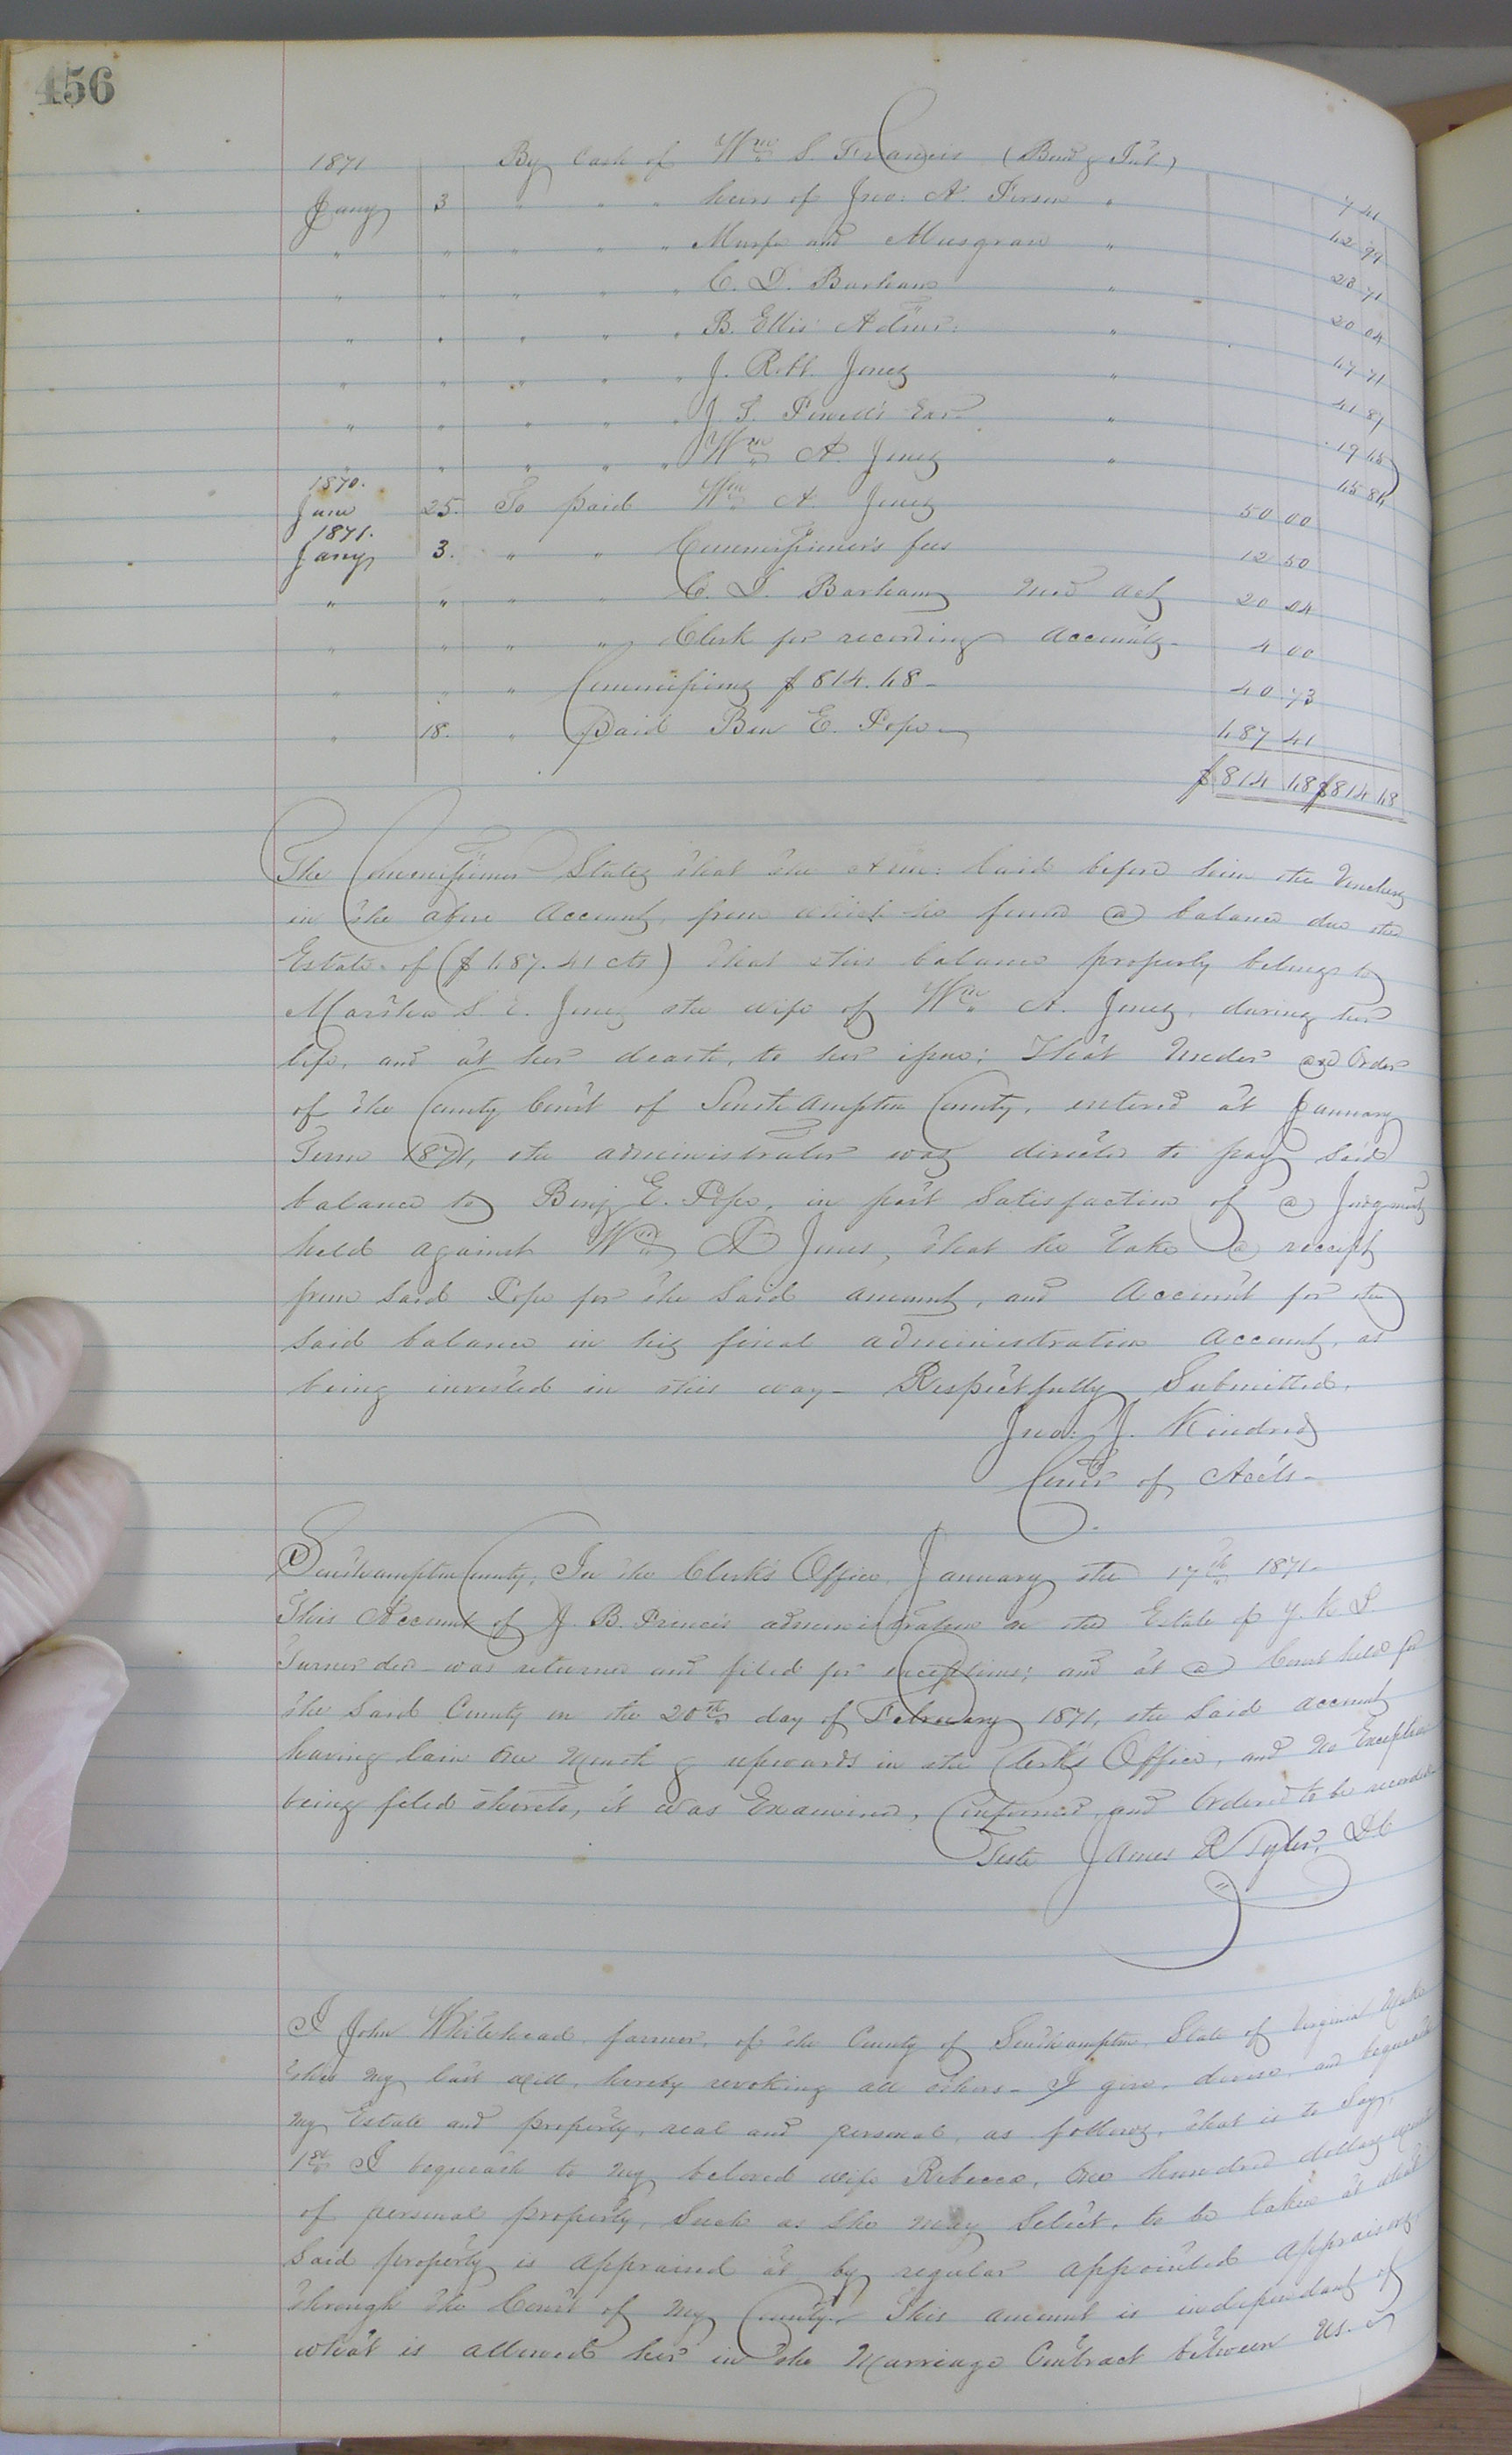 456
1871 By Cash of Wm S. Francis (Bond & Int)
Jany 3 " " " heirs of Jno: A. " 7 41
" " " " " and Musgrave " 42 94
" " " " " C. D. Barham " 28 71
" " " " " B. Ellis Admr: " 20 04
" " " " " J. Robt. Jones " 47 71
" " " " " J. S. Powell's Exr " 41 87
" " " " " Wm A. Jones " 19 45
45 84
1870.
June 25. To paid Wm A. Jones 50 00
1871.
Jany 3. " " Commissioner's fees 12 50
" " " " C. D. Barham Med act 20 04
" " " " Clerk for recording Accounts - 4 00
" " " Commissions $814.48 - 40 73
" 18. " Paid Ben E. Pope - 487 41
$814 48 $814 48
The Commissioner States that the Adm: laid before him the Vouchers
in the above Account, from which he found a balance due the
Estate of ($487.41 cts) that this balance properly belongs to
Martha S. E. Jones the wife of Wm A. Jones, during her
life, and at her death, to her issue; That Under an Order
of the County Court of Southampton County, entered at January
Term 1871, the administrator was directed to pay said
balance to Benj E. Pope, in part Satisfaction of a Judgment
held against Wm A Jones, that he take a receipt
from said Pope for the said amount, and Account for the
said balance in his final administration Account, as
being invested in this way - Respectfully Submitted.
Jno: J. Kindred
Comr of Accts -
Southampton County, In the Clerk's Office, January the 17th 1871 -
This Account of J. B. Prince's administration on the Estate of
Turner decd was returned and filed for exceptions; and at a Court held for
the said County on the 20th day of February 1871, the said account
having lain One Month & upwards in the Clerk's Office, and No Exception
being filed thereto, it was Examined, Confirmed, and Ordered to be recorded
Teste James R Tyler, DC
I John Whitehead, farmer, of the County of Southampton, State of Virginia Make
this my last will, hereby revoking all others - I give, devise, and bequeath
my Estate and property, real and personal, as follows, that is to Say,
1st I bequeath to my beloved wife Rebecca, One hundred dollars
of personal property, Such as she may Select, to be taken at what
said property is appraised at by regular appointed appraisers,
through the Court of my County. This amount is independant of
what is allowed her in the Marriage Contract between us -